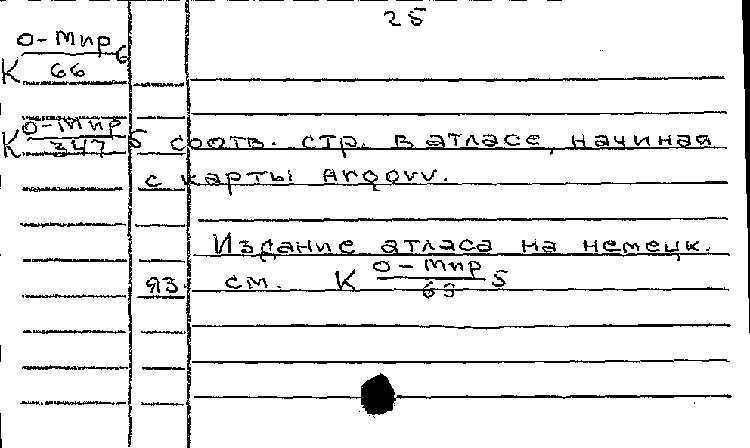 25
О-Мир
К 66 6
О-Мир
К 347 5 соотв. стр. в атласе, начиная
с карты
Издание атласа на немецк.
яз. см. К О-Мир
63 5